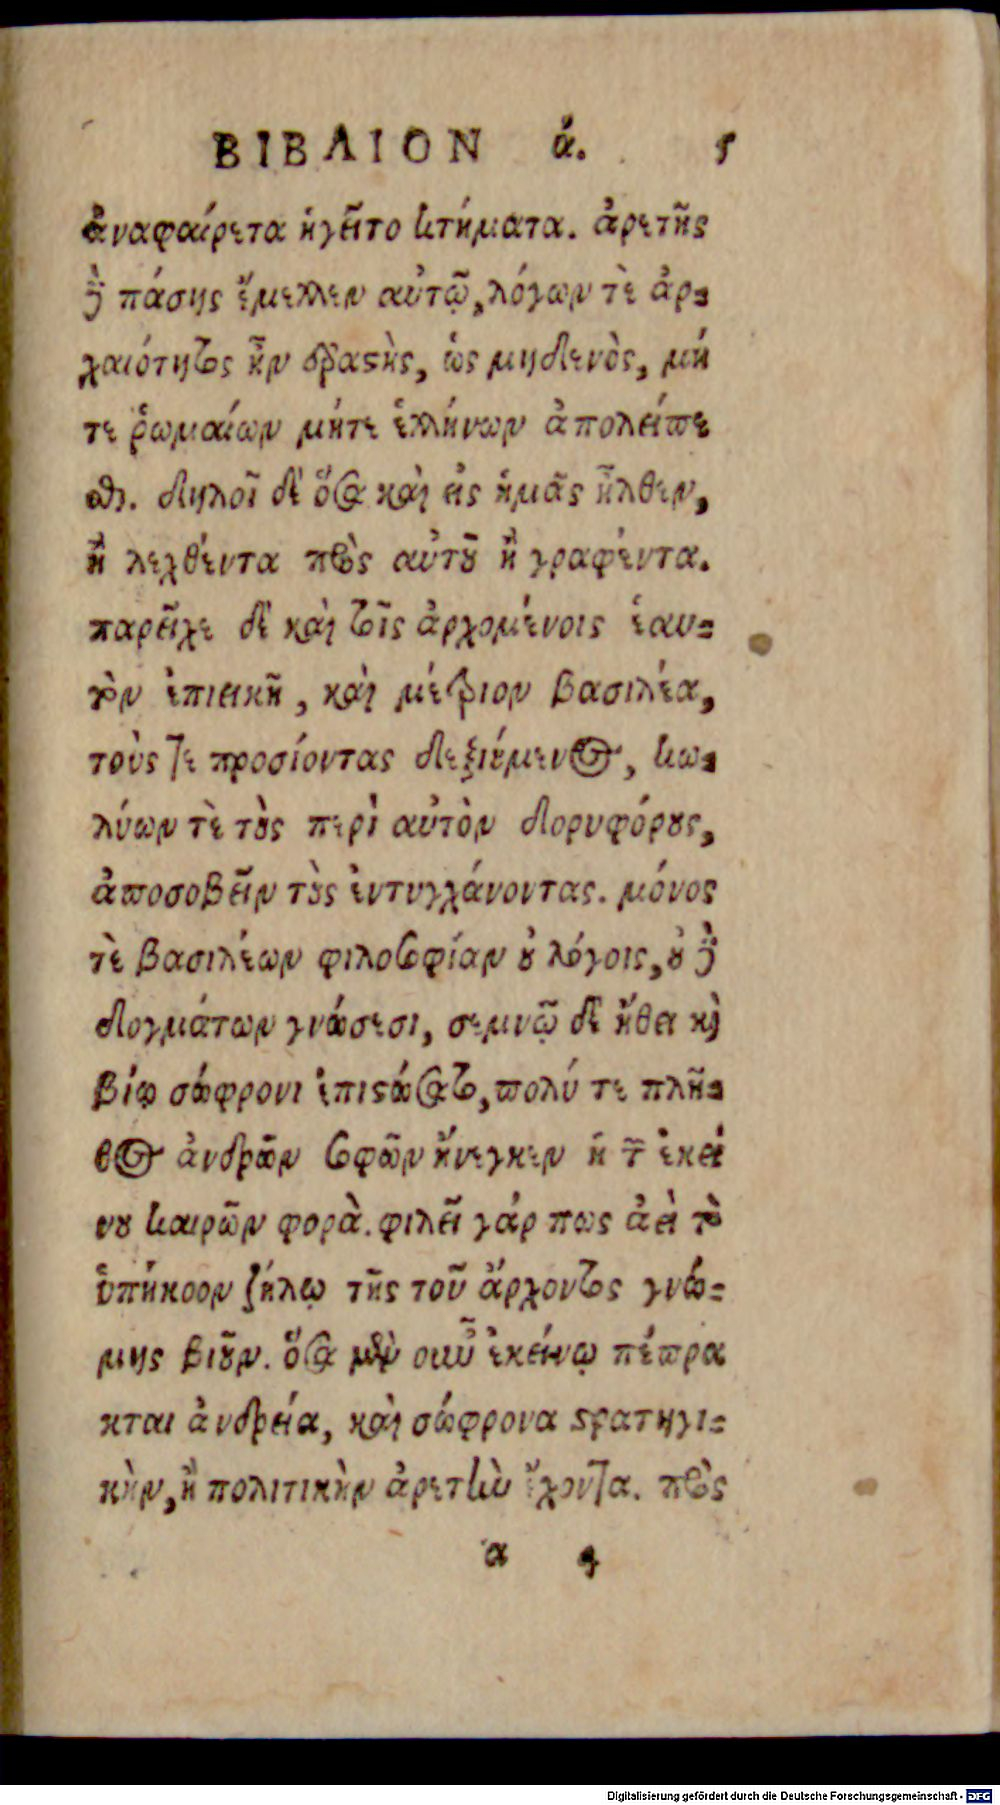 ΒΙΒΛΙΟΝ ά. 5
ἀναφαίρετα ἡγεῖτο κτήματα. ἀρετῆς
δὲ πάσης ἔμελλεν αὐτῷ, λόγων τὲ ἀρ-
χαιότητος ἦν ἐραστὴς, ὡς μηδενὸς, μή
τε ῥωμαίων μήτε ἑλλήνων ἀπολείπε
σθαι. δηλοῖ δὲ ὅσα καὶ εἰς ἡμᾶς ἦλθεν,
ἢ λεχθέντα πρὸς αὐτοῦ ἢ γραφέντα.
παρεῖχε δὲ καὶ τοῖς ἀρχομένοις ἑαυ-
τὸν ἐπιεικῆ, καὶ μέτριον βασιλέα,
τοὺς τε προσίοντας δεξιούμενος, κω-
λύων τὲ τοὺς περὶ αὐτὸν δορυφόρους,
ἀποσοβεῖν τοὺς ἐντυγχάνοντας. μόνος
τὲ βασιλέων φιλοσοφίαν οὐ λόγοις, οὐ δὲ
δογμάτων γνώσεσι, σεμνῷ δὲ ἤθει καὶ
βίῳ σώφρονι ἐπιστώσατο, πολύ τε πλῆ-
θος ἀνδρῶν σοφῶν ἤνεγκεν ἡ τῶν ἐκεί
νου καιρῶν φορὰ. φιλεῖ γάρ πως ἀεὶ τὸ
ὑπήκοον ζήλῳ τῆς τοῦ ἄρχοντος γνώ-
μης βιοῦν. ὅσα μὲν οὖν ἐκείνῳ πέπρα
κται ἀνδρεία, καὶ σώφρονα στρατηγι-
κὴν, ἢ πολιτικὴν ἀρετὴν ἔχοντα. πρὸς
α 5
Digitalisierung gefördert durch die Deutsche Forschungsgemeinschaft - DFG